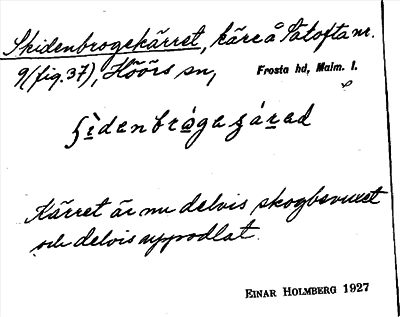 Skidenbrogekärret, kärr å Vätofta nr.
9 (fig. 37), Höörs sn, Frosta hd, Malm. l.
Kärret är nu delvis skogbevuxet
och delvis uppodlat.
EINAR HOLMBERG 1927